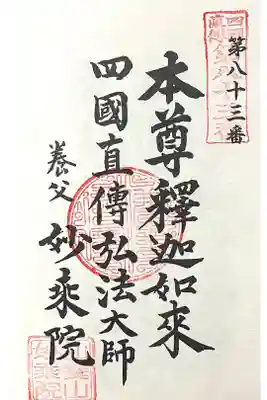 第八十三番
本尊釋迦如來
四國直傳弘法大師
養父 妙乘院